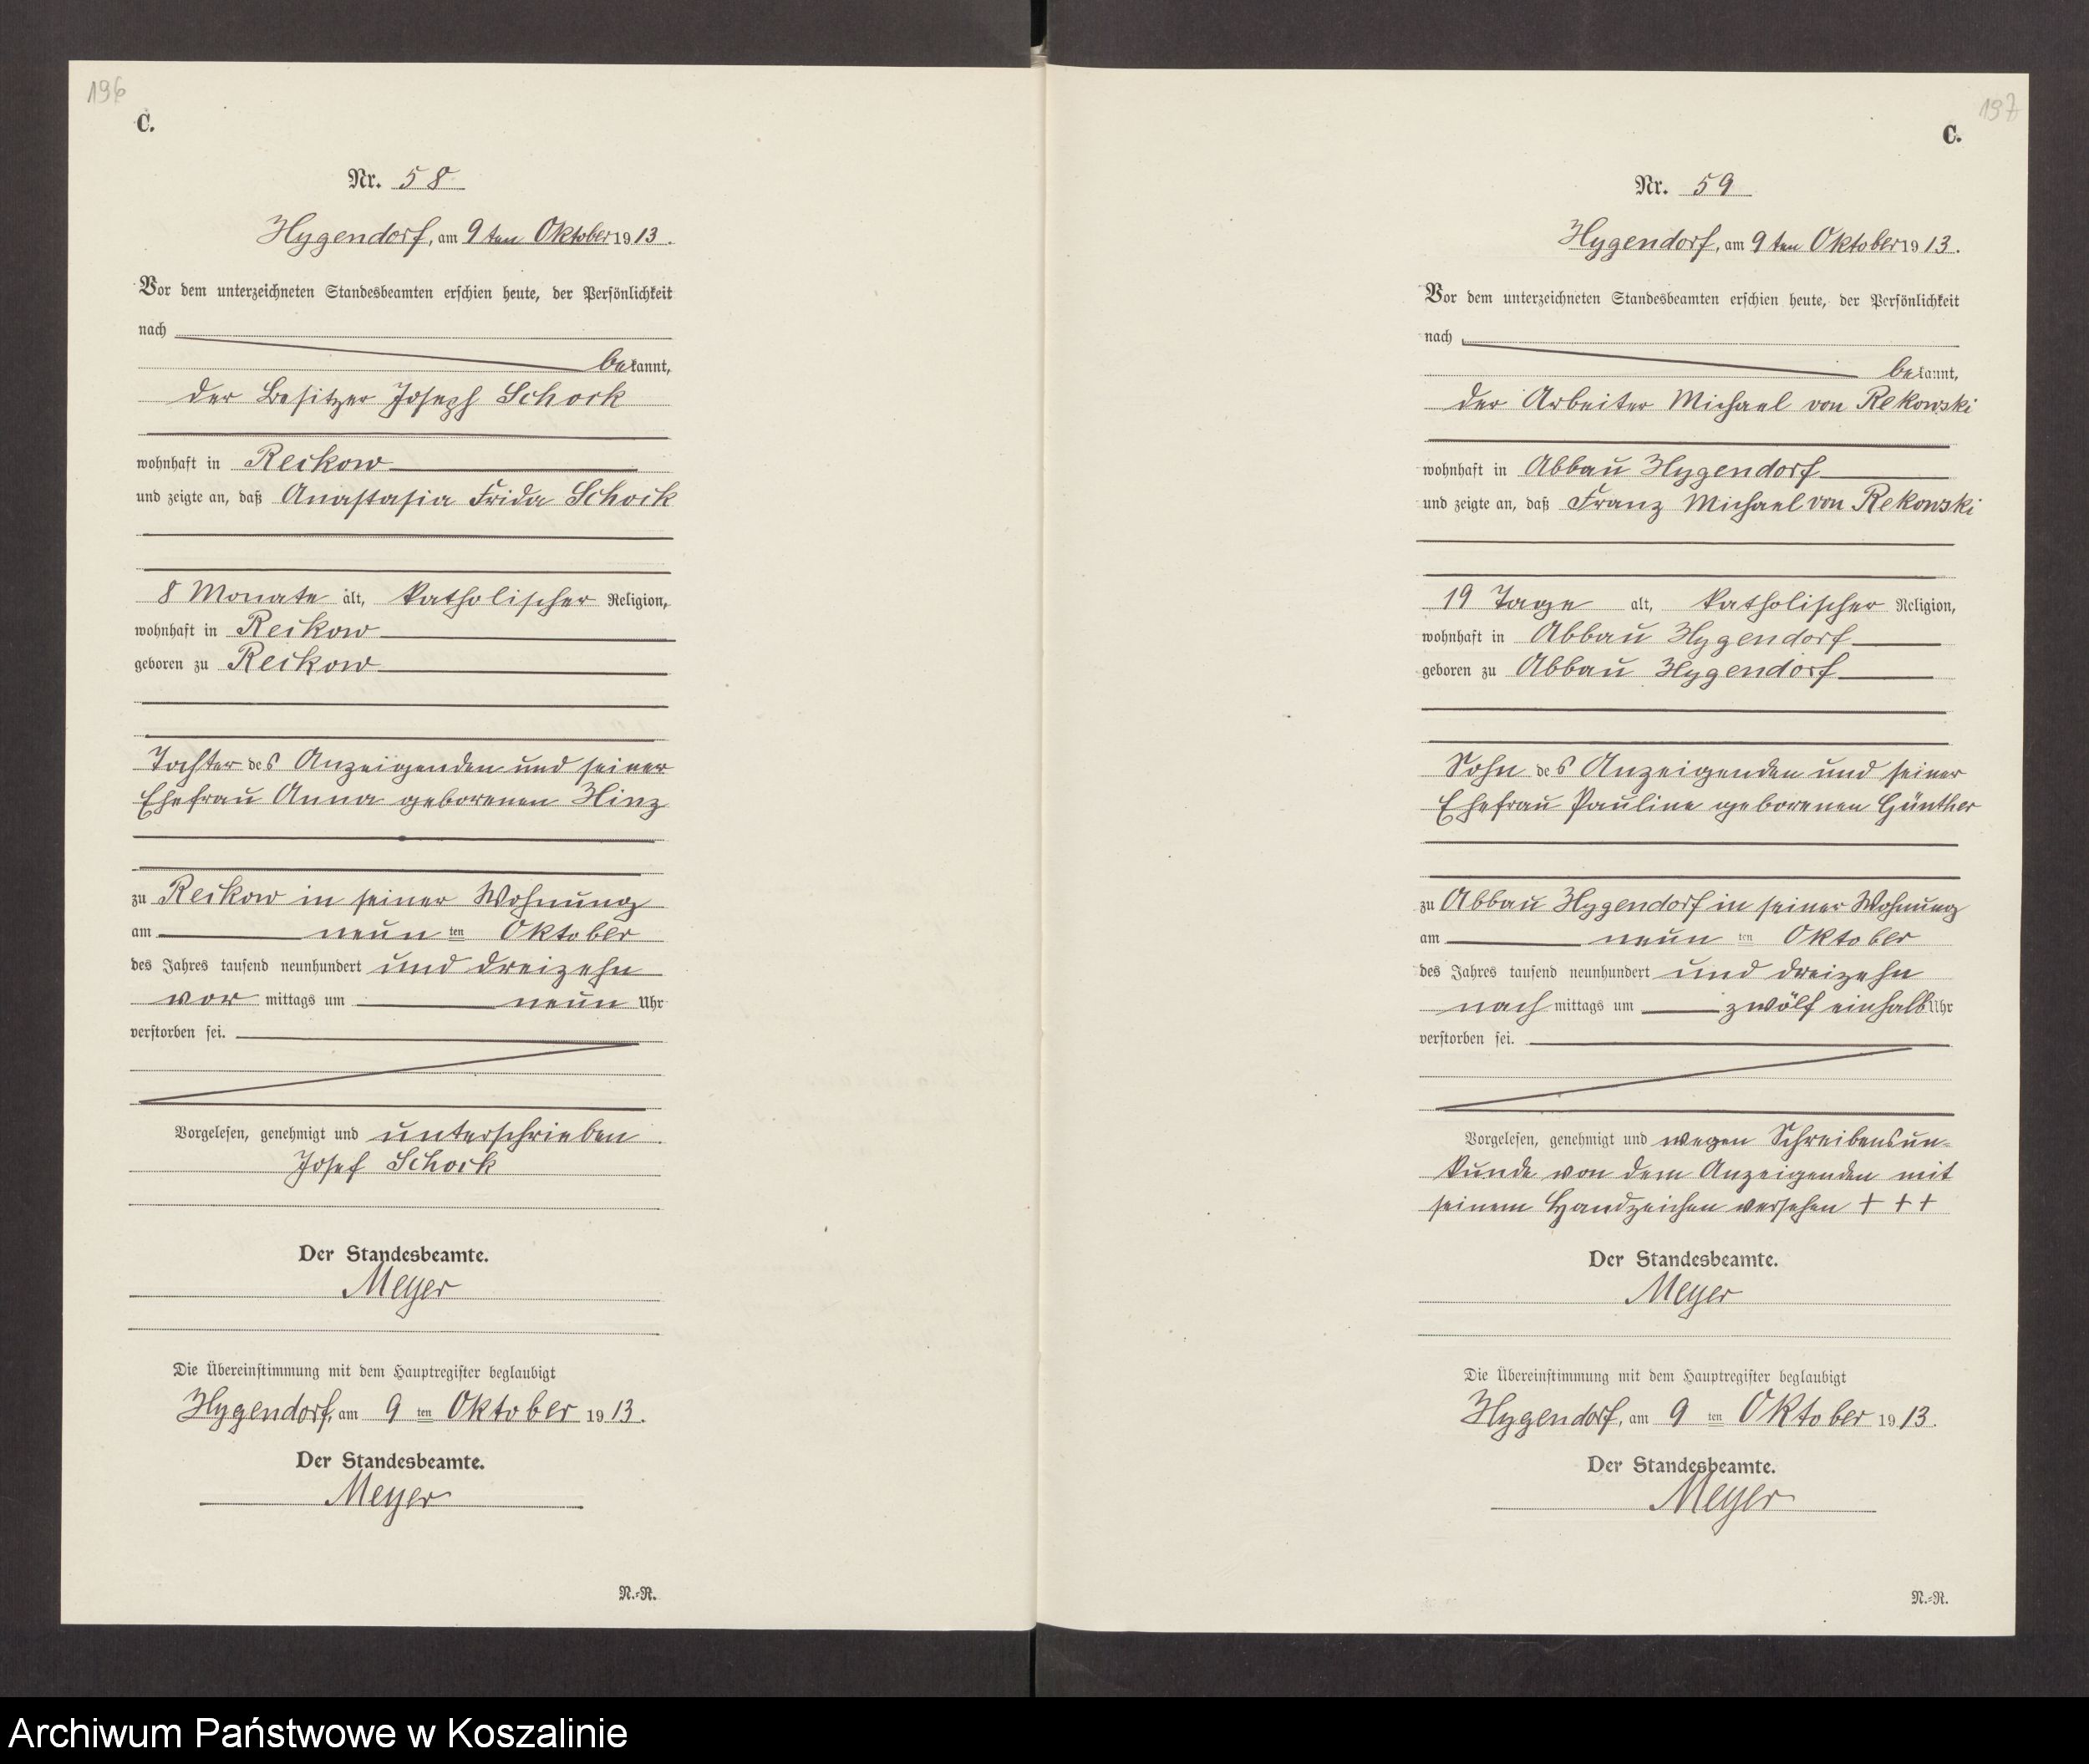 196
C.
Nr. 58
Hygendorf, am 9ten Oktober 1913.
Vor dem unterzeichneten Standesbeamten erschien heute, der Persönlichkeit
nach
bekannt,
der Besitzer Joseph Schock
wohnhaft in Reckow
und zeigte an, daß Anastasia Frida Schock
8 Monate alt, katholischer Religion,
wohnhaft in Reckow
geboren zu Reckow
Tochter des Anzeigenden und seiner
Ehefrau Anna geborenen Hinz
zu Reckow in seiner Wohnung
am neun ten Oktober
des Jahres tausend neunhundert und dreizehn
vor mittags um neun Uhr
verstorben sei.
Vorgelesen, genehmigt und unterschrieben
Josef Schock
Der Standesbeamte.
Meyer
Die Übereinstimmung mit dem Hauptregister beglaubigt
Hygendorf, am 9 ten Oktober 1913.
Der Standesbeamte.
Meyer
N.-R.
197
C.
Nr. 59
Hygendorf, am 9ten Oktober 1913.
Vor dem unterzeichneten Standesbeamten erschien heute, der Persönlichkeit
nach
bekannt,
der Arbeiter Michael von Rekowski
wohnhaft in Abbau Hygendorf
und zeigte an, daß Franz Michael von Rekowski
19 Tage alt, katholischer Religion,
wohnhaft in Abbau Hygendorf
geboren zu Abbau Hygendorf
Sohn des Anzeigenden und seiner
Ehefrau Pauline geborenen Günther
zu Abbau Hygendorf in seiner Wohnung
am neun ten Oktober
des Jahres tausend neunhundert und dreizehn
nach mittags um zwölf einhalb Uhr
verstorben sei.
Vorgelesen, genehmigt und wegen Schreibensun-
kunde von dem Anzeigenden mit
seinem Handzeichen versehen + + +
Der Standesbeamte.
Meyer
Die Übereinstimmung mit dem Hauptregister beglaubigt
Hygendorf, am 9 ten Oktober 1913.
Der Standesbeamte.
Meyer
N.-R.
Archiwum Państwowe w Koszalinie